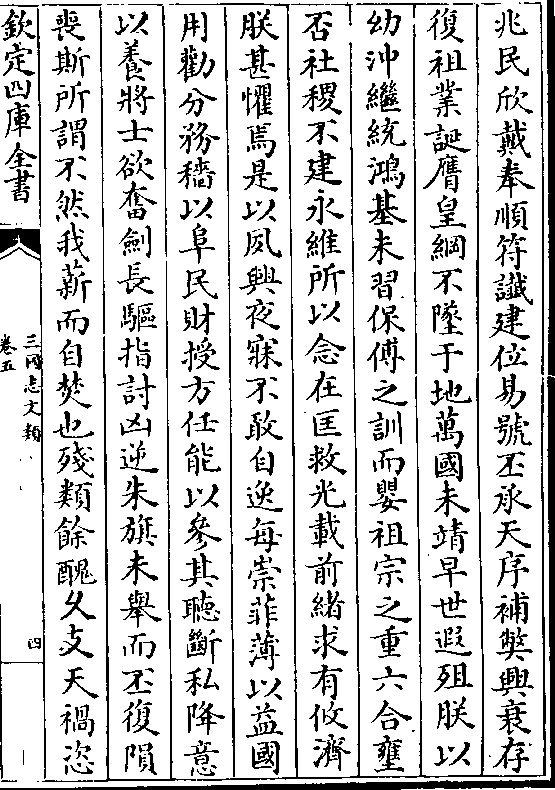 兆民欣戴奉順符讖建位易號丕承天序補弊興衰存
復祖業誕膺皇綱不墜于地萬國未靖早世遐殂朕以
幼沖繼統鴻基未習保傅之訓而嬰祖宗之重六合壅
否社稷不建永維所以念在匡救光載前緒求有攸濟
朕甚懼焉是以夙興夜寐不敢自逸每崇菲薄以益國
用勸分務穡以阜民財授方任能以參其聽斷私降意
以養將士欲奮劍長驅指討凶逆朱旗未舉而丕復隕
喪斯所謂不然我薪而自焚也殘類餘醜又支天禍恣
欽定四庫全書
三國志文類
卷五
四